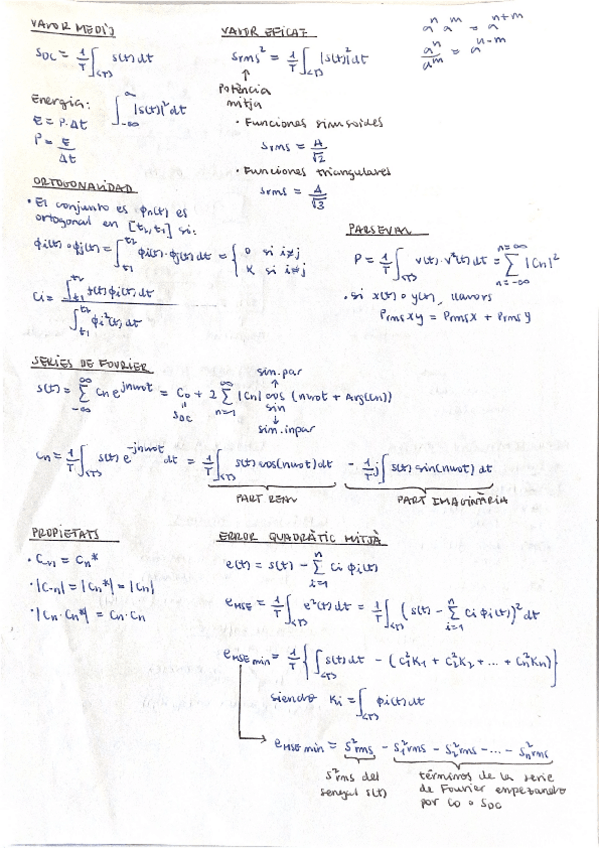 VALOR MEDIJ
S_DC = 1/T ∫_<T> s(t) dt
Energia: ∫_-∞^∞ |s(t)|² dt
E = P·Δt
P = E/Δt
VALOR EFICAÇ
s_rms² = 1/T ∫_<T> |s(t)|² dt
↑
Potència
mitja
• Funciones sinusoides
s_rms = A/√2
• Funciones triangulares
s_rms = A/√3
a^n a^m = a^(n+m)
a^n/a^m = a^(n-m)
ORTOGONALIDAD
• El conjunto es φn(t) es
ortogonal en [t₂, t₁] si:
φi(t) ∘ φj(t) = ∫_t1^t2 φi(t)·φj(t) dt = { 0 si i≠j
K si i=j
Ci = ∫_t1^t2 s(t) φi(t) dt / ∫_t1^t2 φi²(t) dt
PARSEVAL
P = 1/T ∫_<T> v(t)·v*(t) dt = Σ_(n=-∞)^(n=∞) |Cn|²
• si x(t) ∘ y(t), llavors
Prms xy = Prms x + Prms y
SERIES DE FOURIER
s(t) = Σ_-∞^∞ Cn e^(jnwot) = Co + 2 Σ_(n=1)^∞ |Cn| cos (nwot + Arg(Cn))
sin.par
↑
S_DC
sin
↓
sin.inpar
Cn = 1/T ∫_<T> s(t) e^(-jnwot) dt = 1/T ∫_<T> s(t) cos(nwot) dt - 1/T j ∫ s(t) sin(nwot) dt
PART REAL PART IMAGINÀRIA
PROPIETATS
• C-n = Cn*
• |C-n| = |Cn*| = |Cn|
• |Cn · Cn*| = Cn · Cn
ERROR QUADRÀTIC MITJÀ
e(t) = s(t) - Σ_(i=1)^n Ci φi(t)
e_MSE = 1/T ∫_<T> e²(t) dt = 1/T ∫_<T> (s(t) - Σ_(i=1)^n Ci φi(t))² dt
e_MSE min = 1/T { ∫_<T> s(t) dt - (C₁²K₁ + C₂²K₂ + ... + Cn²Kn) }
siendo Ki = ∫_<T> φi(t) dt
→ e_MSE min = S²rms - S₁²rms - S₂²rms - ... - Sn²rms
S²rms del
senyal s(t)
términos de la serie
de Fourier empezando
por Co o S_DC